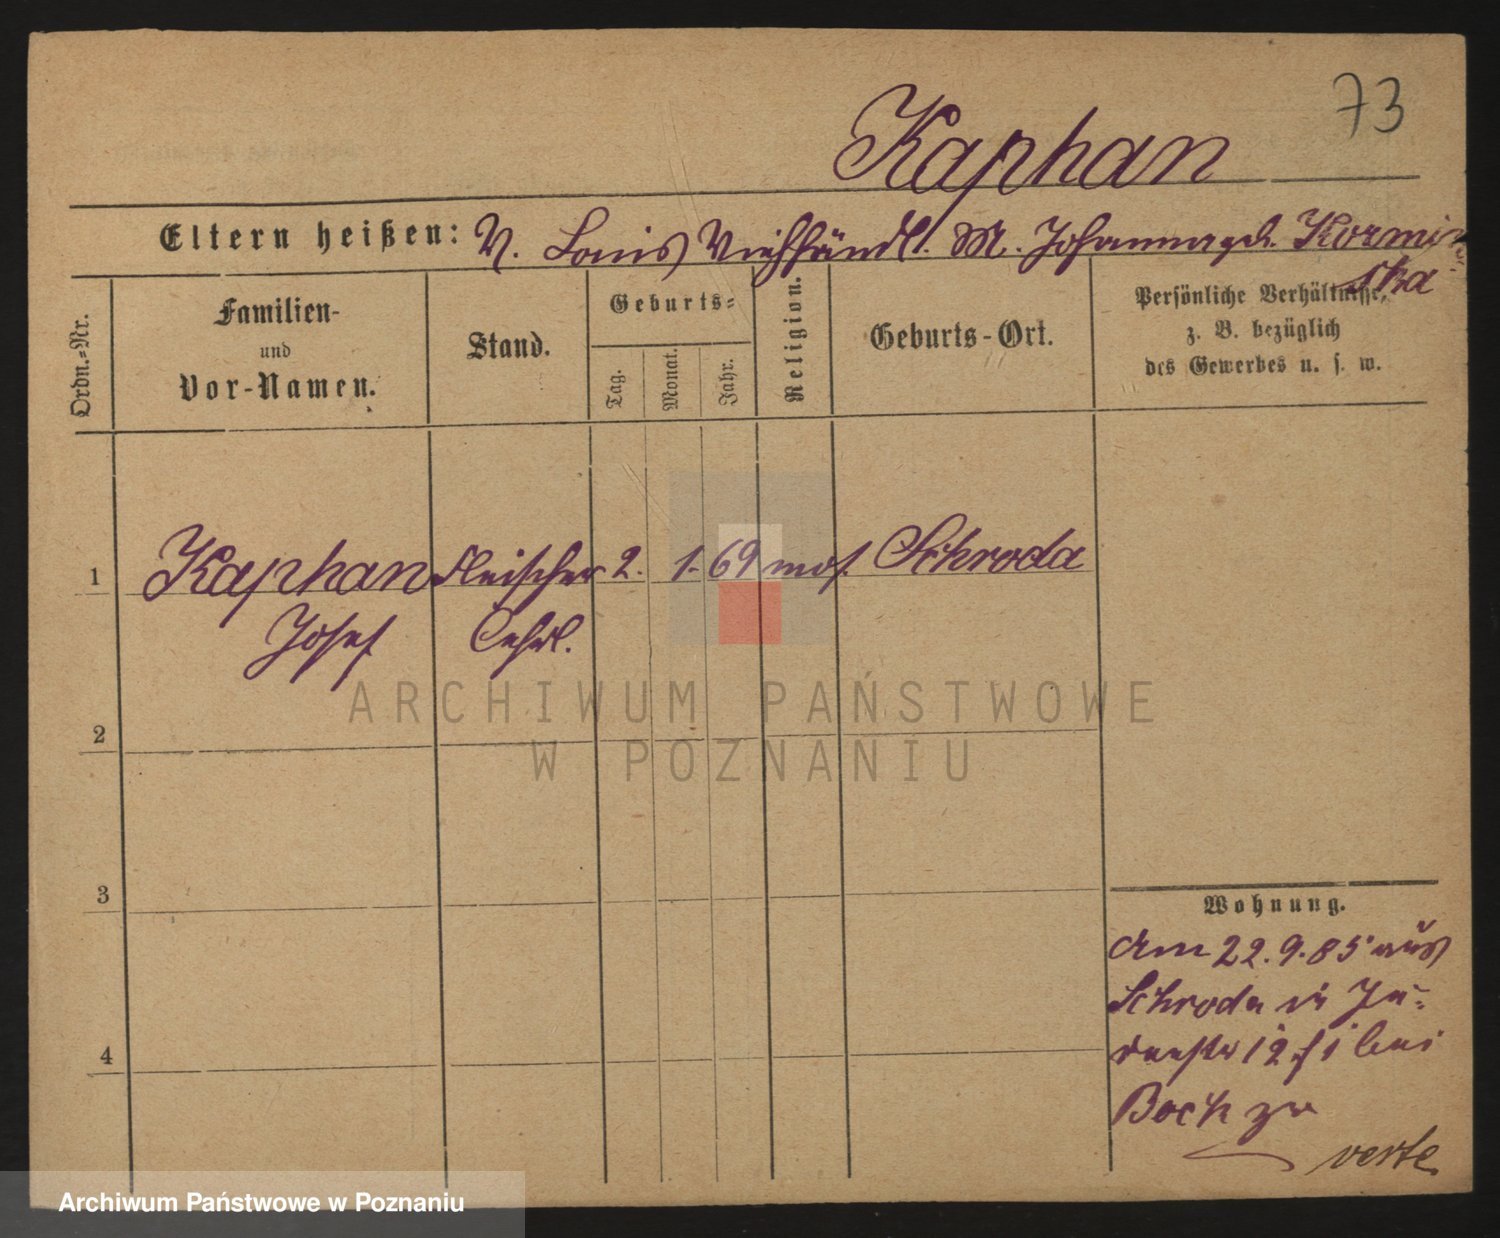 73
Kaphan
Eltern heißen: V. Louis Viehhändl. M. Johanna geb. Kormin-
ska
Ordn.-Nr.
Familien-
und
Vor-Namen.
Stand.
Geburts-
Tag.
Monat.
Jahr.
Religion.
Geburts-Ort.
Persönliche Verhältnisse,
z. B. bezüglich
des Gewerbes u. s. w.
1 Kaphan Fleischer 2. 1. 69 mos. Schroda
Josef Lehrl.
2
3
4
Wohnung.
Am 22.9.85 aus
Schroda in Ju-
denstr 12 I bei
Bock zu
verte
ARCHIWUM PAŃSTWOWE
W POZNANIU
Archiwum Państwowe w Poznaniu